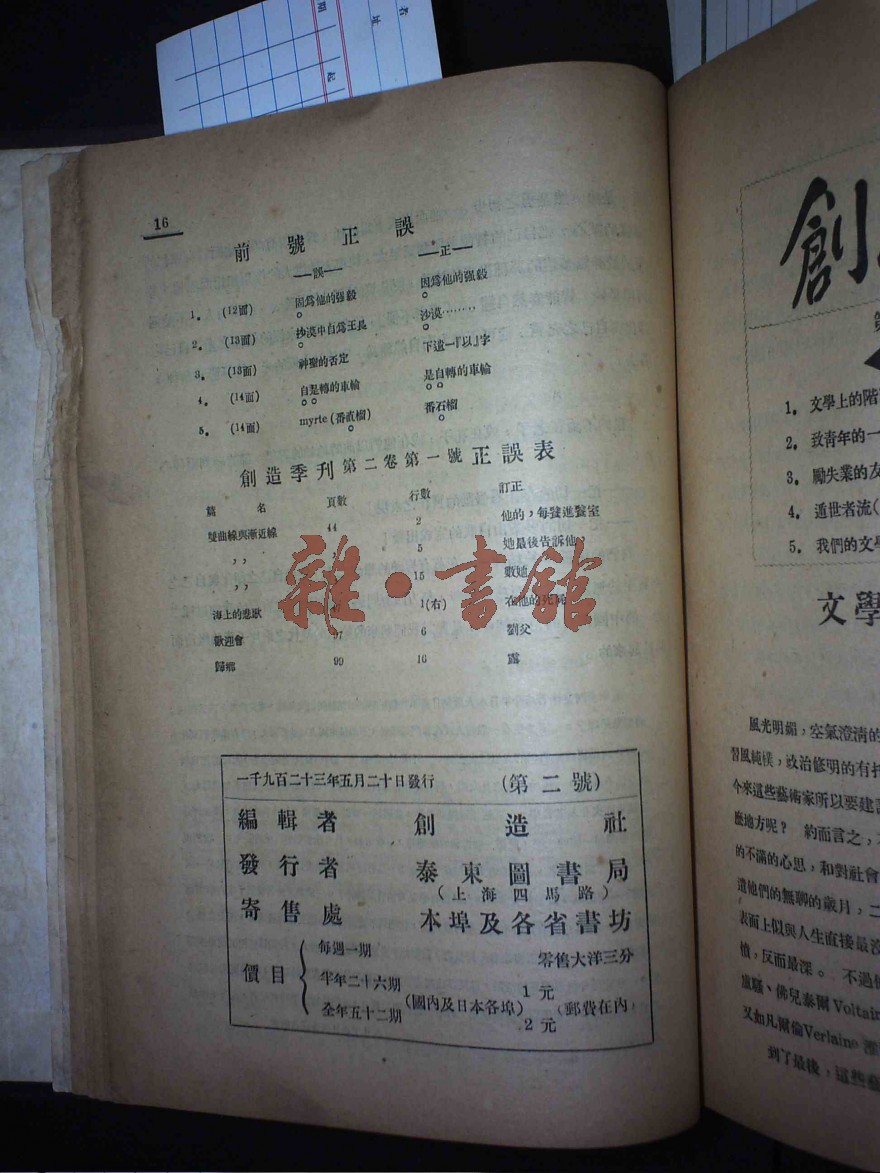 者
期
起
16
前號正誤
—誤— —正—
1。 (12面) 固爲他的强毅 因爲他的强毅
2。 (13面) 抄漠中自爲王長 沙漠………
3。 (13面) 神聖的否定 下遺一『以』字
4。 (14面) 自是轉的車輪 是自轉的車輪
5。 (14面) myrte (番直榴) 番石榴
創造季刊第二卷第一號正誤表
篇名 頁數 行數 訂正
雙曲線與漸近線 44 2 他的，每聲進聲室
,, 5 她最後告訴他，
,, 15 數她
海上的悲歌 1(右) 在他的死
歡迎會 97 6 劉父
歸鄉 99 16 露
雜·書館
一千九百二十三年五月二十日發行 (第二號)
編輯者 創造社
發行者 泰東圖書局
(上海四馬路)
寄售處 本埠及各省書坊
價目
每週一期 零售大洋三分
半年二十六期 1元
(國內及日本各埠) (郵費在內)
全年五十二期 2元
創
第
1。 文學上的階
2。 致青年的一
3。 勵失業的友
4。 遁世者流(
5。 我們的文學
文學
風光明媚，空氣澄清的
習風純樸，政治修明的有托
今來這些藝術家所以要建設
麼地方呢？ 約而言之，
的不滿的心思，和對社會
遣他們的無聊的歲月，二
表面上似與人生直接最沒
憤，反而最深。 不過他
盧騷、佛兒泰爾Voltair
又如凡爾倫Verlaine
到了最後，這些藝